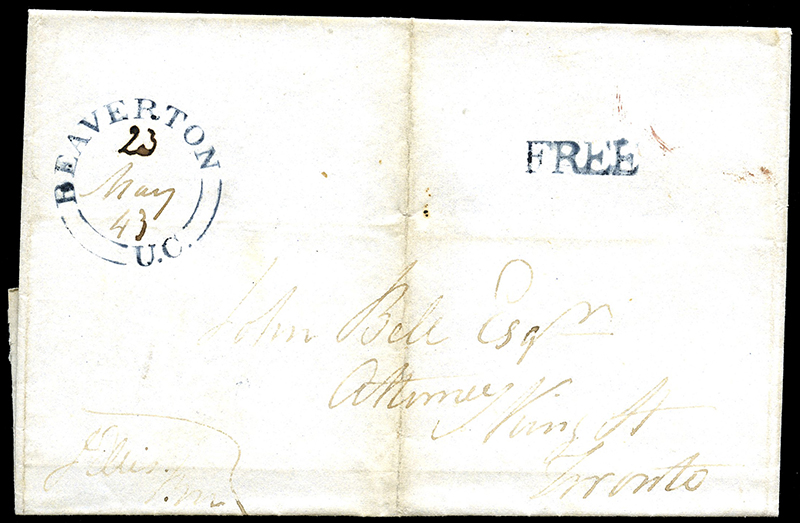 BEAVERTON
23
May
43
U.C.
FREE
John Bell Esqr
Attorney
King St
Toronto